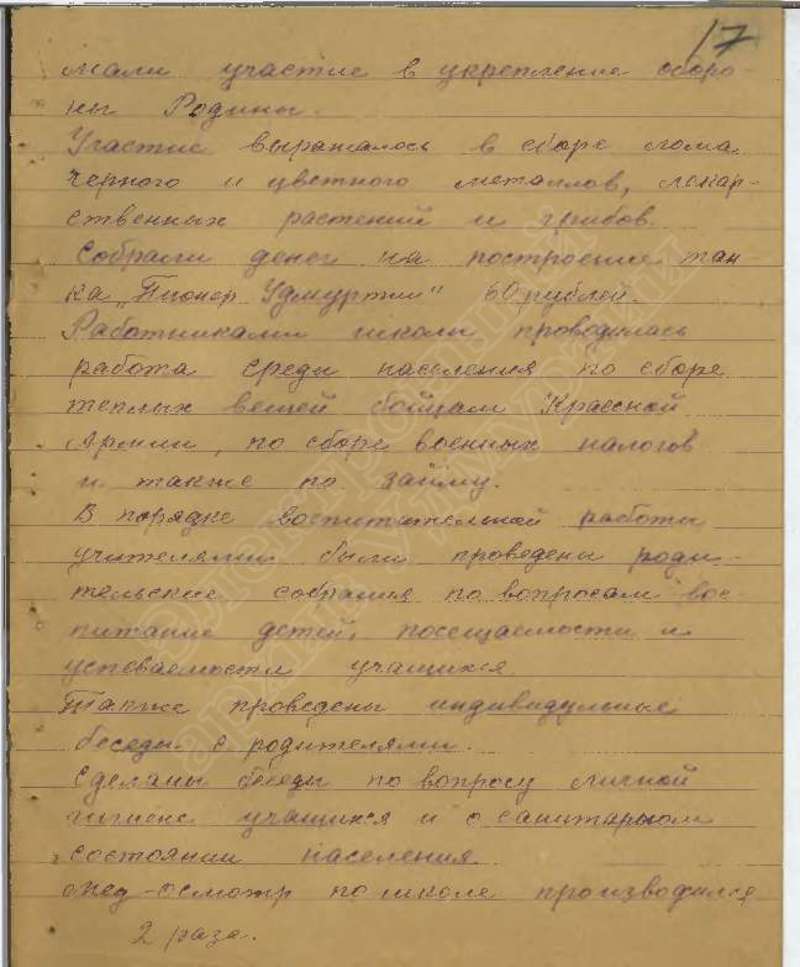 17
мали участие в укрепление оборо-
ны Родины.
Участие выражалось в сборе лома
черного и цветного металлов, лекар-
ственных растений и грибов.
Собрали денег на построение тан-
ка „Пионер Удмуртии" 60 рублей.
Работниками школы проводилась
работа среди населения по сборе
теплых вещей бойцам Красной
Армии, по сборе военных налогов
и также по займу.
В порядке воспитательной работы
учителями были проведены роди-
тельские собрания по вопросам вос-
питание детей, посещаемости и
успеваемости учащихся.
Также проведены индивидульные
беседы с родителями.
Сделаны беседы по вопросу личной
гигиене учащихся и о санитарном
состоянии населения.
Мед-осмотр по школе производился
2 раза.
Электронный
архив Удмуртии